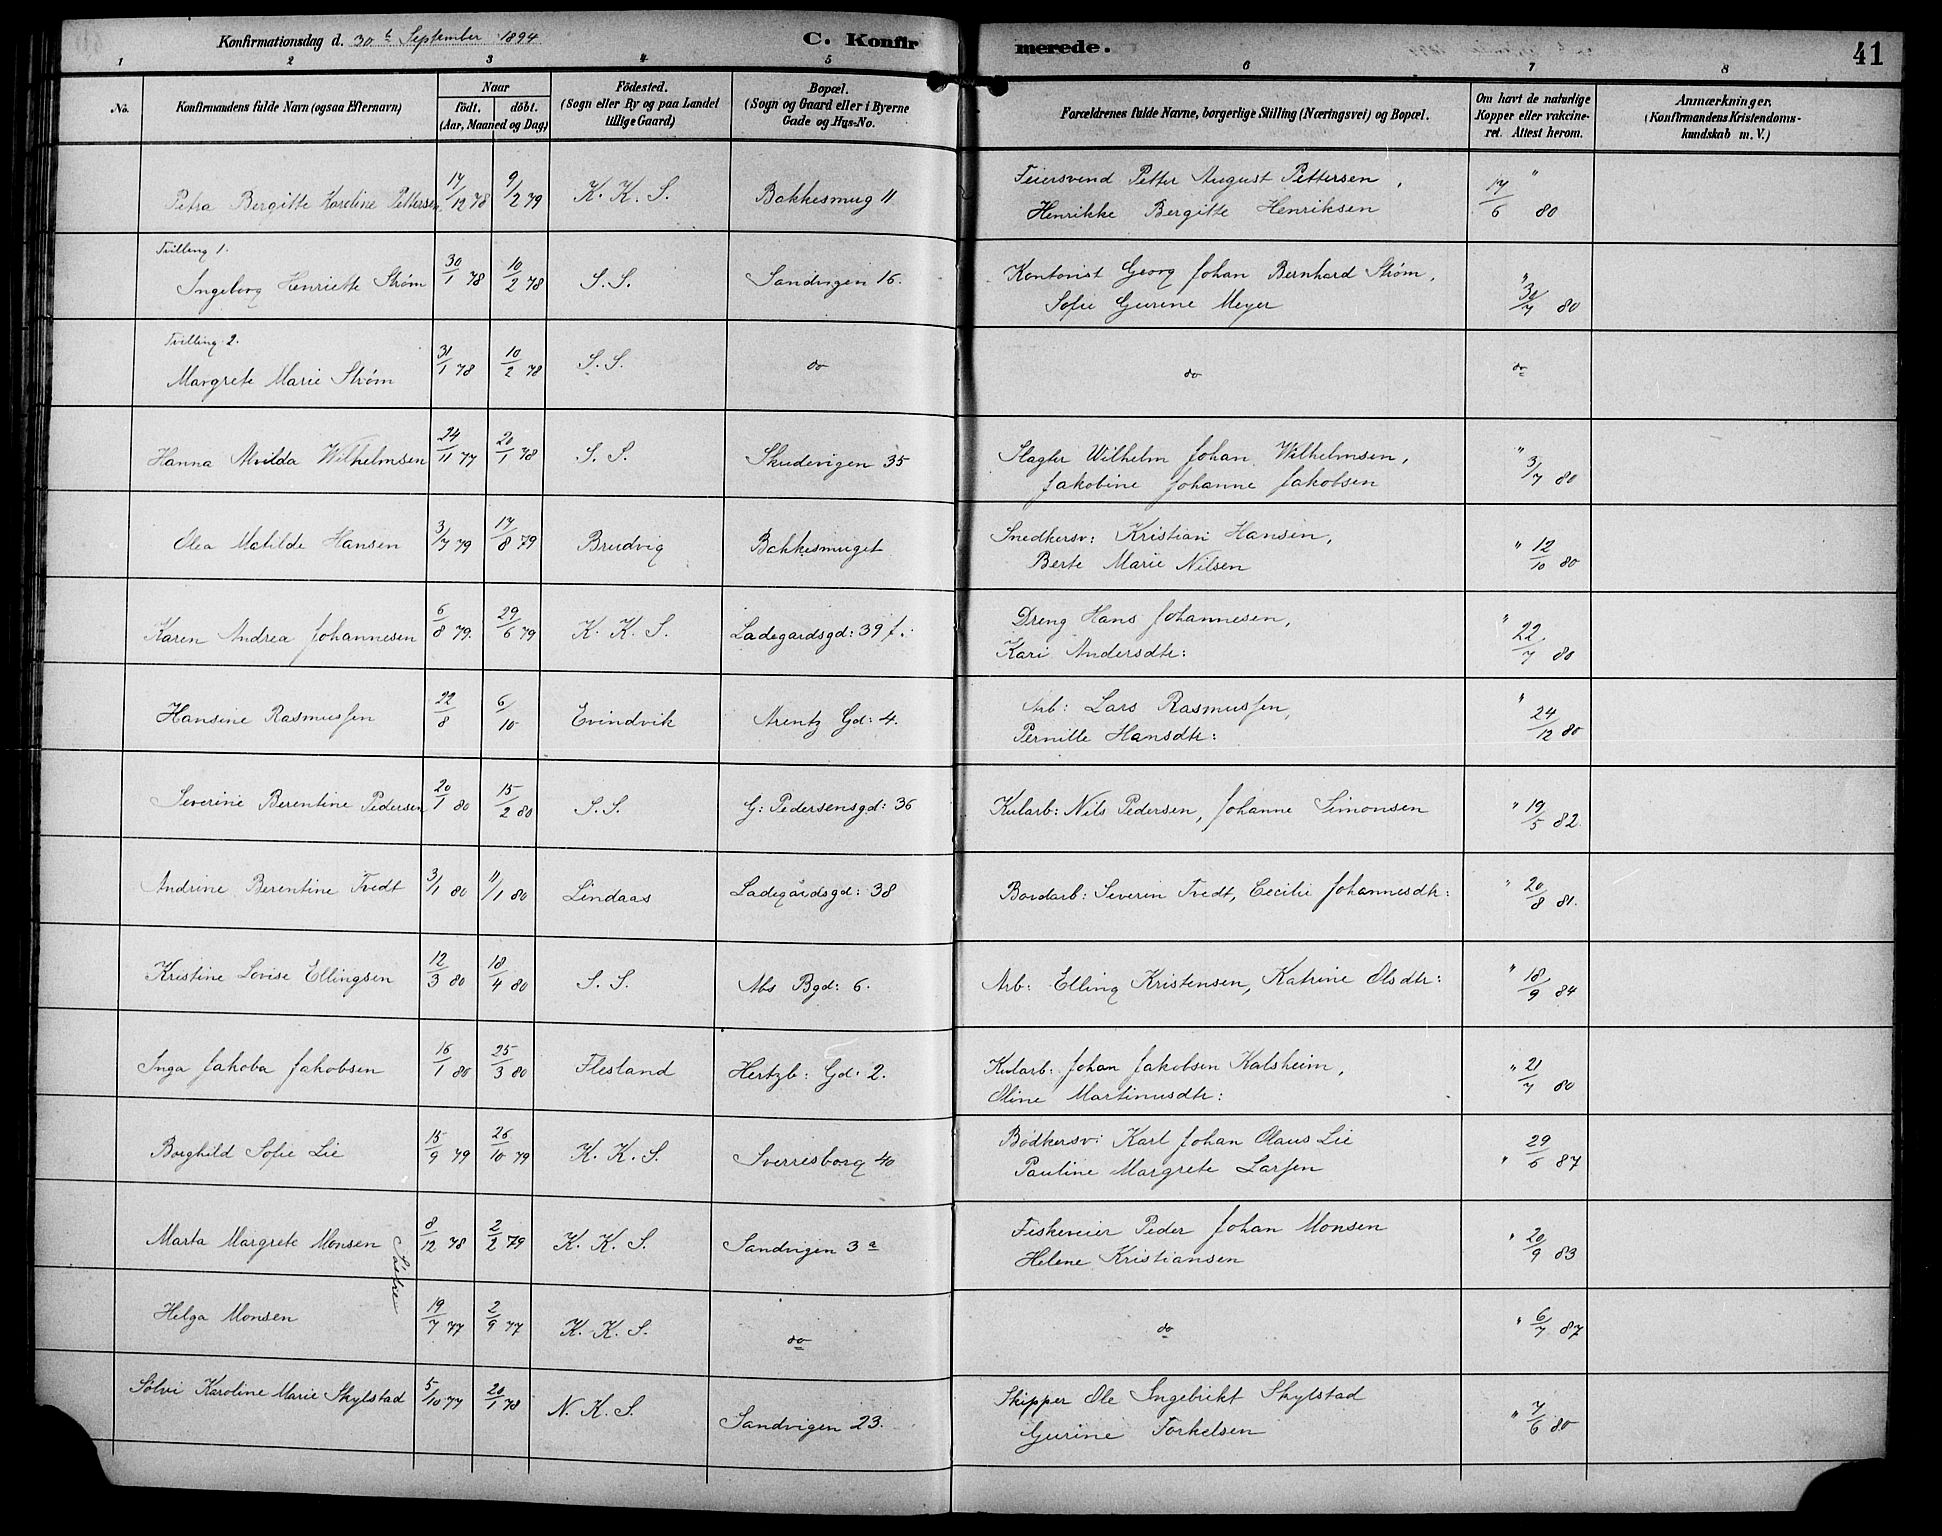 Konfirmationsdag d. 30te September 1894
C. Konfirmerede.
41
1 2 3 4 5 6 7 8
No.
Konfirmandens fulde Navn (ogsaa Efternavn)
Naar
födt. döbt.
(Aar, Maaned og Dag)
Födested.
(Sogn eller By og paa Landet
tillige Gaard)
Bopæl.
(Sogn og Gaard eller i Byerne
Gade og Hus-No.
Forældrenes fulde Navne, borgerlige Stilling (Næringsvei) og Bopæl.
Om havt de naturlige
Kopper eller vakcine-
ret. Attest herom.
Anmærkninger.
(Konfirmandens Kristendoms-
kundskab m. V.)
Petra Bergitte Karoline Pettersen 17/12 78 9/2 79 K. K. S. Bakkesmug 11 Feiersvend Petter August Pettersen, " 17/6 80
Henrikke Bergitte Henriksen
Tvilling 1.
Ingeborg Henriette Strøm 30/1 78 10/2 78 S. S. Sandvigen 16. Kontorist Georg Johan Bernhard Strøm, " 30/7 80
Sofie Gurine Meyer
Tvilling 2.
Margrete Marie Strøm 31/1 78 10/2 78 S. S. do do do
Hanna Alvilda Wilhelmsen 24/11 77 20/1 78 S. S. Skudevigen 35 Slagter Wilhelm Johan Wilhelmsen, " 3/7 80
Jakobine Johanne Jakobsen
Olea Matilde Hansen 3/7 79 17/8 79 Brudvig Bakkesmuget Snedkersv: Kristian Hansen, " 12/10 80
Berte Marie Nilsen
Karen Andrea Johannesen 6/8 79. 29/6 79 K. K. S. Ladegardsgd: 39 f. Dreng Hans Johannesen, " 22/7 80
Kari Andersdtr:
Hansine Rasmussen 22/8 6/10 Evindvik Arentz Gd: 4. Arb: Lars Rasmussen, " 24/12 80
Pernille Hansdtr:
Severine Berentine Pedersen 20/1 80 15/2 80 S. S. G: Pedersensgd: 36 Kularb: Nils Pedersen, Johanne Simonsen " 19/5 82.
Andrine Berentine Tvedt 3/1 80 11/1 80 Lindaas Ladegårdsgd: 38 Bordarb: Severin Tvedt, Cecilie Johannesdtr: " 20/8 81.
Kristine Lovise Ellingsen 12/3 80 18/4 80 S. S. Abs Bgd: 6. Arb: Elling Kristensen, Katrine Olsdtr: " 18/9 84
Inga Jakoba Jakobsen 16/1 80 25/3 80 Flesland Hertzb: Gd: 2. Kularb: Johan Jakobsen Kalsheim, " 21/7 80
Oline Martinusdtr:
Borghild Sofie Lie 15/9 79 26/10 79 K. K. S. Sverresborg 40 Bødkersv: Karl Johan Olaus Lie " 29/6 87
Pauline Margrete Larsen
Marta Margrete Monsen 8/12 78 2/2 79 K. K. S. Sandvigen 3a Fiskeveier Peder Johan Monsen " 20/9 83
Helene Kristiansen
Helga Monsen 19/7 77 2/9 77 K. K. S. do do " 6/7 87
Sølvi Karoline Marie Skylstad 5/10 77 20/1 78 N. K. S. Sandvigen 23. Skipper Ole Ingebrikt Skylstad " 7/6 80
Gurine Torkelsen